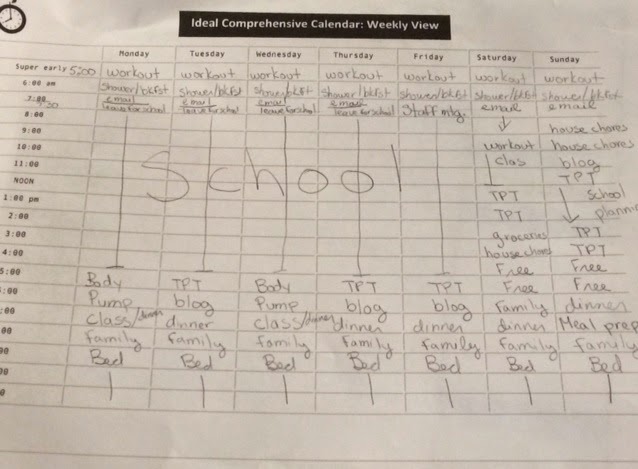 Ideal Comprehensive Calendar: Weekly View
Monday Tuesday Wednesday Thursday Friday Saturday Sunday
Super early 5:00 workout workout workout workout workout workout workout
6:00 am shower/bkfst shower/bkfst shower/bkfst shower/bkfst shower/bkfst shower/bkfst shower/bkfst
7:00 email email email email Staff mtg. email email
7:30 leave for school leave for school leave for school leave for school
8:00
9:00 house chores
10:00 workout house chores
11:00 School clas blog
NOON TPT
1:00 pm TPT school
2:00 TPT plannin
3:00 groceries TPT
4:00 house chores TPT
5:00 Free Free
:00 Body TPT Body TPT TPT Free Free
:00 Pump blog Pump blog blog family dinner
00 Class/dinner dinner Class/dinner dinner dinner dinner Meal prep
00 family family family family family family family
00 Bed Bed Bed Bed Bed Bed Bed
0